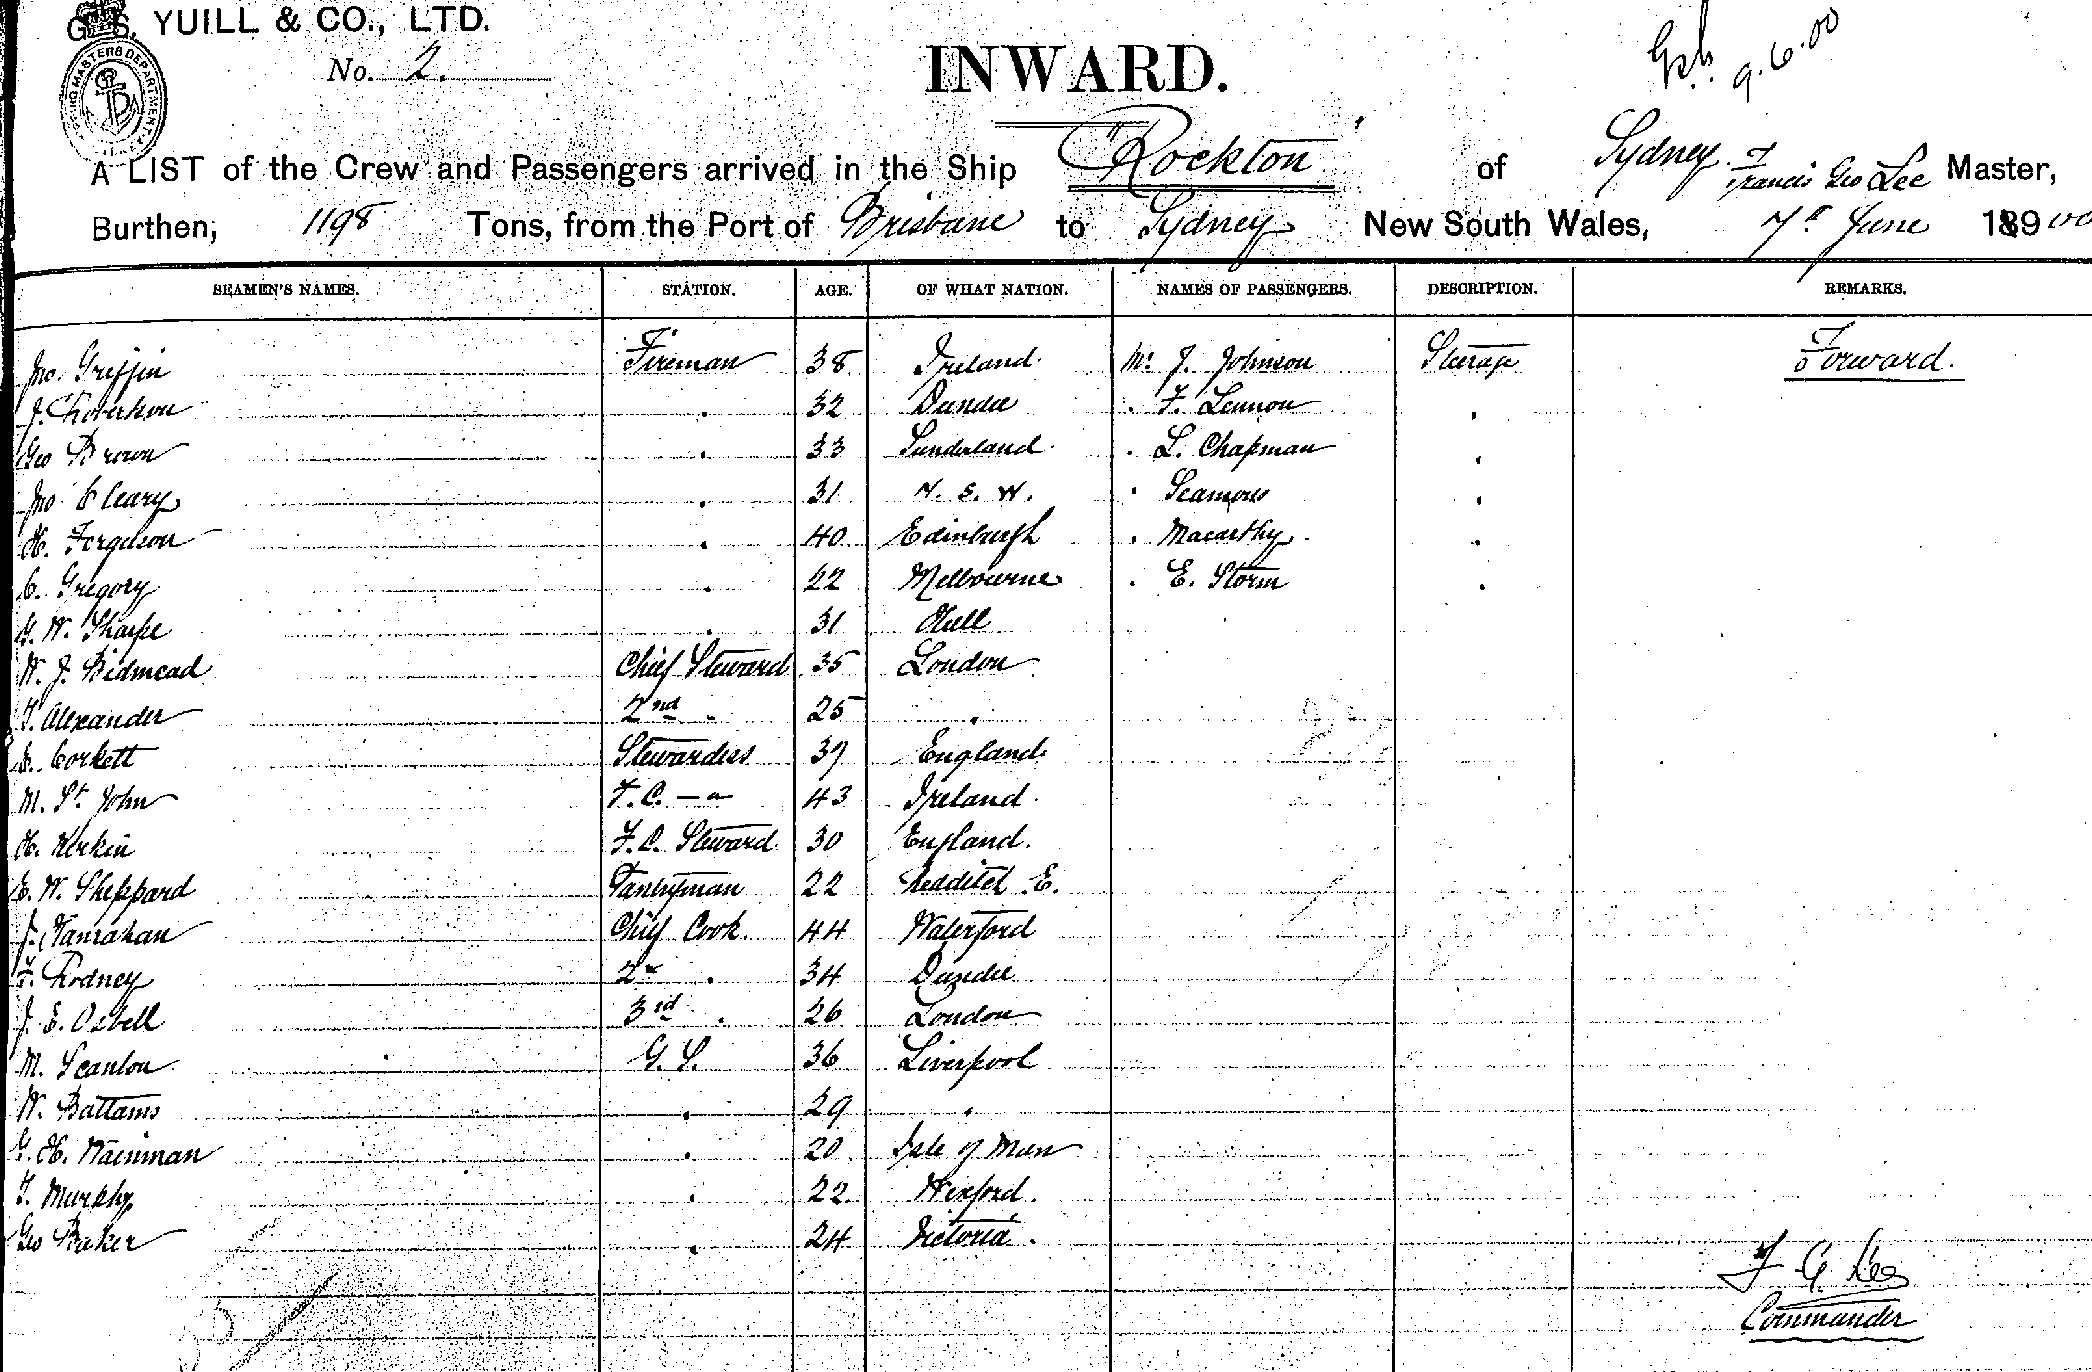 G. S. YUILL & CO., LTD.
No. 2.
INWARD.
9.6.00
SHIPPING MASTERS DEPARTMENT
A LIST of the Crew and Passengers arrived in the Ship "Rockton" of Sydney Francis Geo Lee Master,
Burthen, 1198 Tons, from the Port of Brisbane to Sydney New South Wales, 7th June 1900
SEAMEN'S NAMES. STATION. AGE. OF WHAT NATION. NAMES OF PASSENGERS. DESCRIPTION. REMARKS.
Jno. Griffin Fireman 38 Ireland Mr J. Johnson Steerage Forward.
J. Robertson " 32 Dundee " F. Lennon "
Geo Brown " 33 Sunderland " L. Chapman "
Jno. Cleary " 31 N. S. W. " Seamons "
H. Ferguson " 40 Edinburgh " Macarthy "
C. Gregory " 22 Melbourne " E. Storm "
G. W. Sharpe " 31 Hull
W. J. Bidmead Chief Steward 35 London
T. Alexander 2nd " 25 "
E. Corkett Stewardess 39 England
M. St. John F.C. — " 43 Ireland
H. Kerkin F.C. Steward 30 England.
E. W. Sheppard Pantryman 22 Redditch E.
J. Hanrahan Chief Cook 44 Waterford
F. Rodney 2nd " 34 Dundee
J. E. Osbell 3rd " 26 London
M. Scanlon G. S. 36 Liverpool
W. Battams " 29 "
G. H. Wainman " 20 Isle of Man
T. Murphy " 22 Wexford.
Geo Baker " 24 Victoria.
F G Lee
Commander